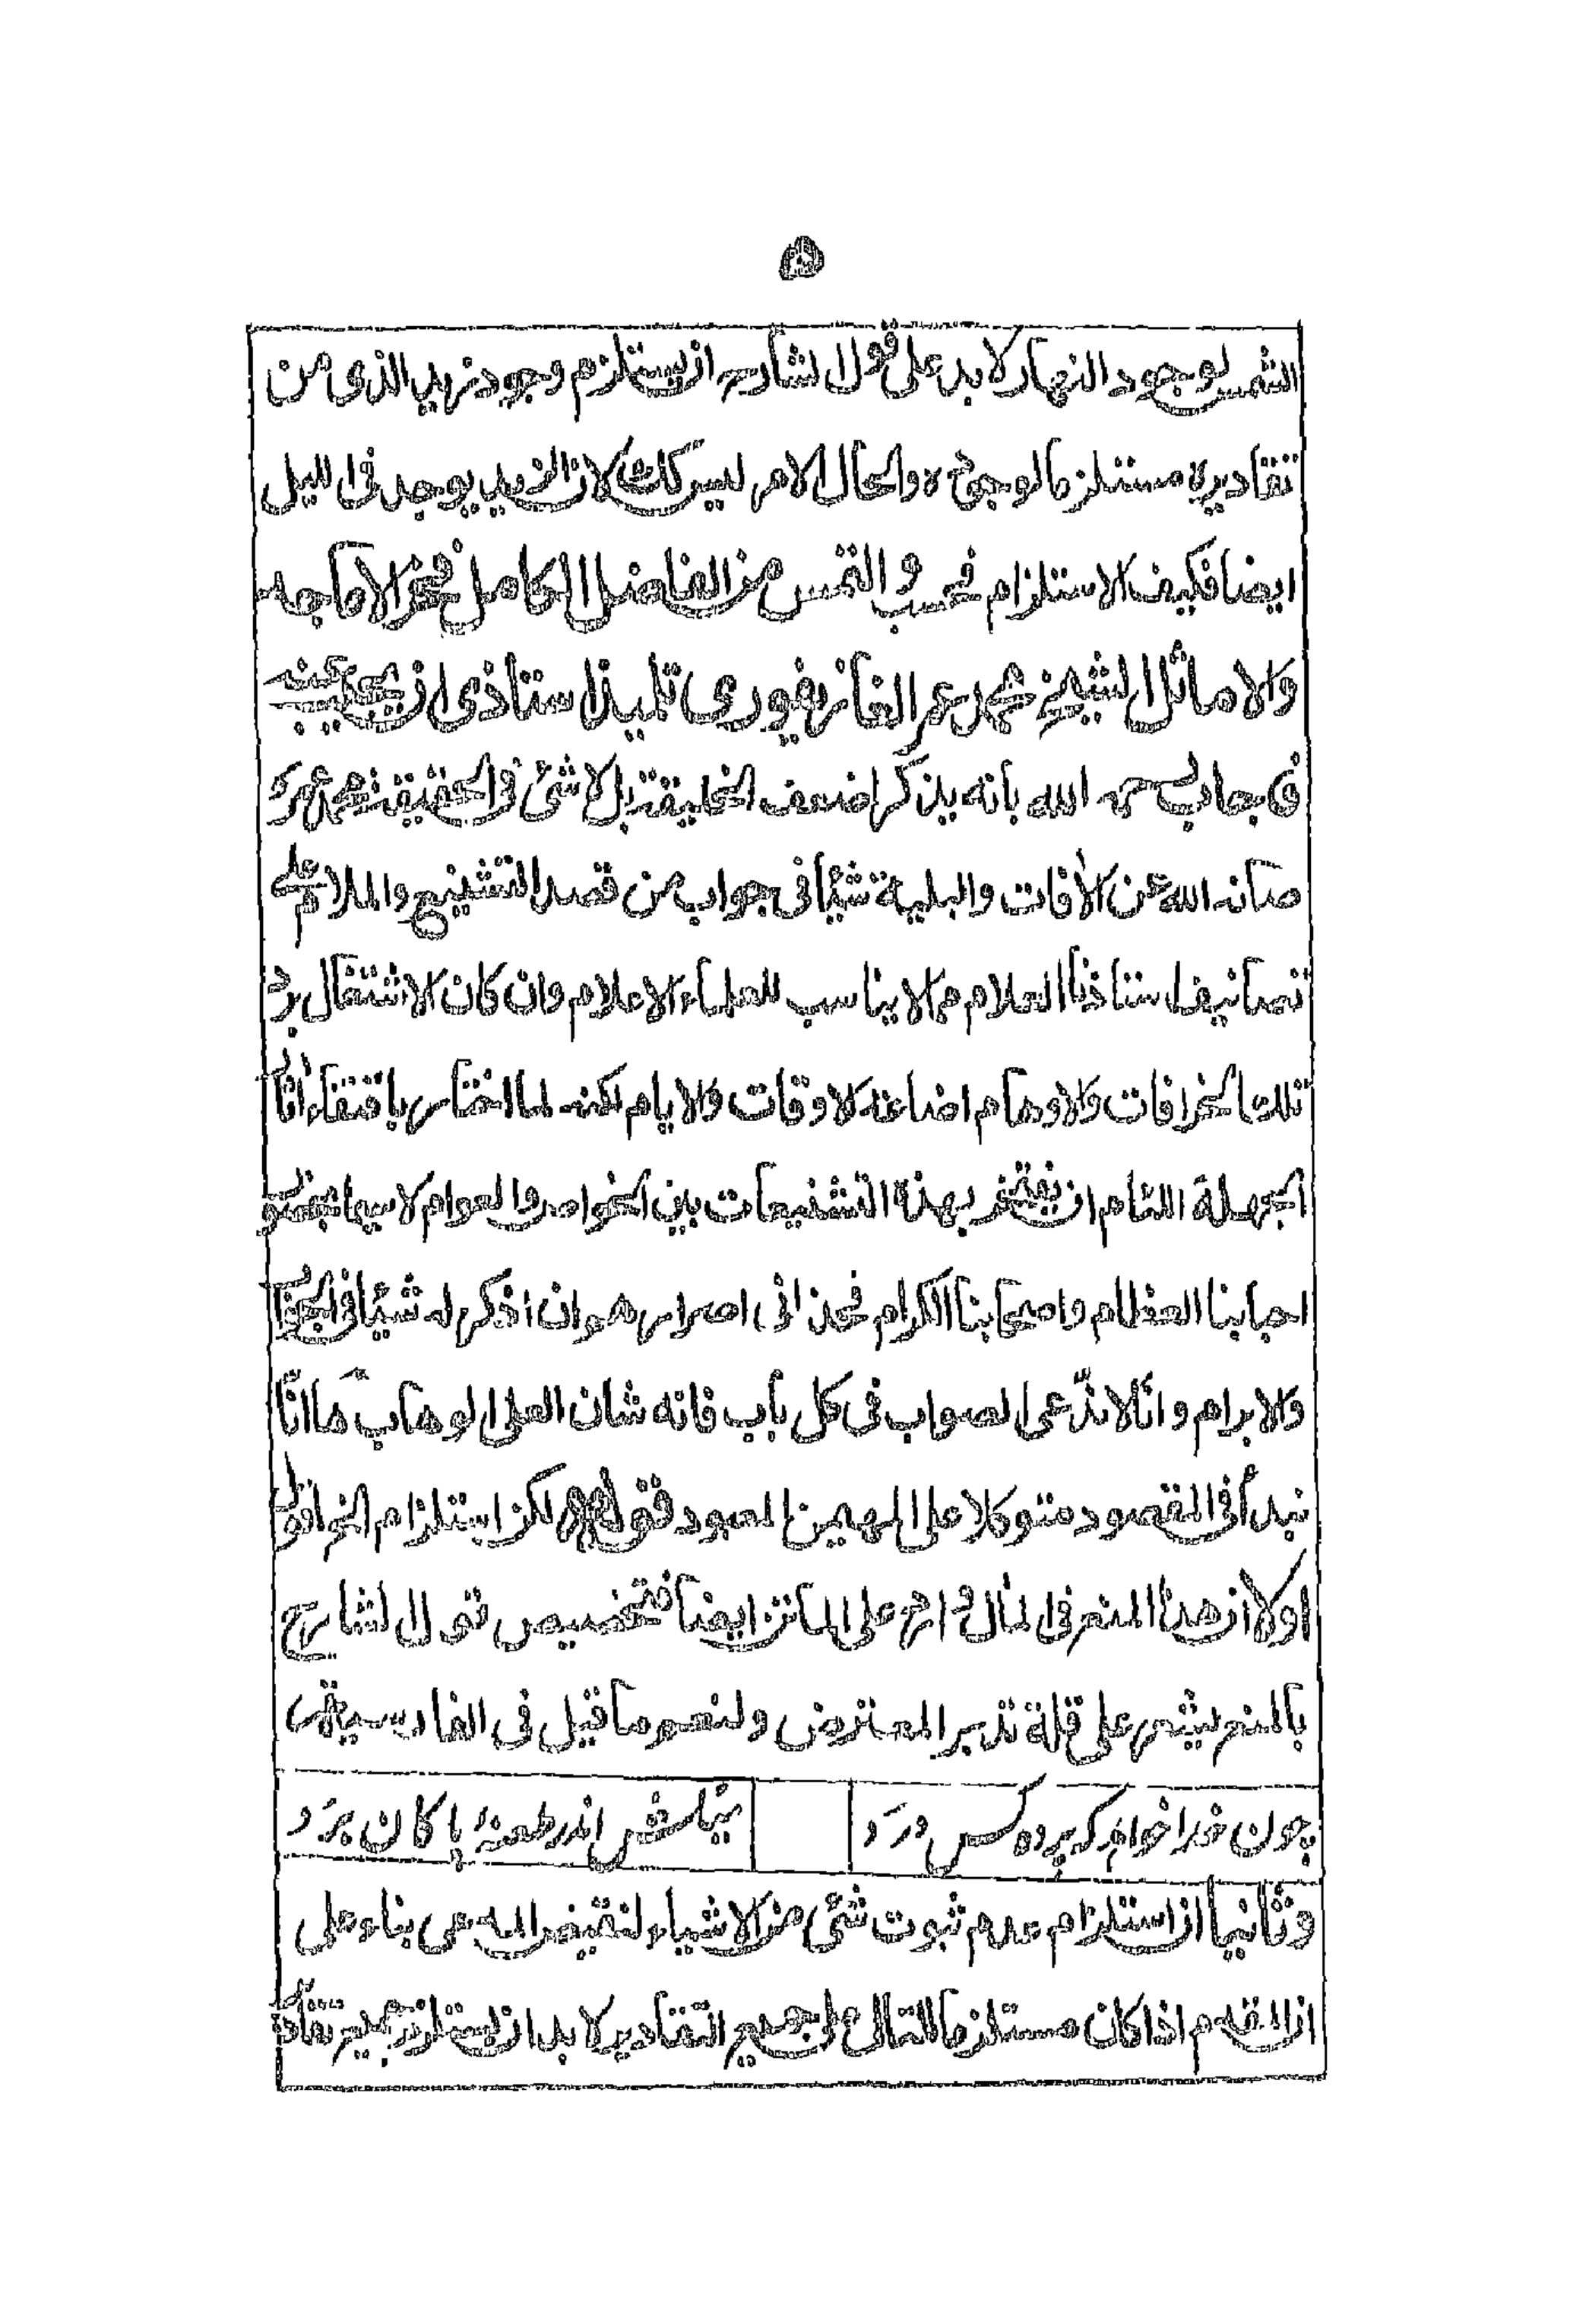 ۵
الشمس لوجود النهار لا بد على قول الشارح ان يستلزم وجود زيد الذى من
تقاديره مستلزما لوجوده والحال الامر ليس كذلك لان الزيد يوجد فى الليل
ايضا فكيف الاستلزام فحسب و التمس من الفاضل الكامل فخر الاماجد
والاماثل الشيخ محمد عمر الغازيفورى تلميذ استاذى ان يجيب عنه
فاجاب رحمه الله بانه يذكر اضعف الخليقة بل لا شئ فى الحقيقة محمد عمر
صانه الله عن الآفات والبلية شيئا فى جواب من قصد التشنيع والملام على
تصانيف استاذنا العلام مما لا يناسب للعلماء الاعلام وان كان الاشتغال برد
تلك الخرافات والاوهام اضاعة الاوقات والايام لكنه لما اختار باقتفاء
الجهلة اللئام ان يفتخر بهذه التشنيعات بين الخواص والعوام لا سيما بحضور
احبابنا العظام واصحابنا الكرام فى اصرارهم ان اذكر له شيئا فى
والابرام و انا لا ندّعى الصواب فى كل باب فانه شان العلى الوهاب ها انا
نبدأ فى المقصود متوكلا على المهيمن المعبود فقوله لكن استلزام الخ اقول
اولا ان هذا المنع فى المآل وارد على الماتن ايضا فتخصيص قول الشارح
بالمنع يشعر على قلة تدبر المعترض ولنعم ما قيل فى الفارسية
چون خدا خواهد كه پرده كس درد
ميلش اندر طعنهٔ پاكان برد
وثانيا ان استلزام عدم ثبوت شئ من الاشياء لنقيض المدعى بناء على
ان المقدم اذا كان مستلزما للتالى على جميع التقادير لا بد ان يستلزم جميع تقاديره